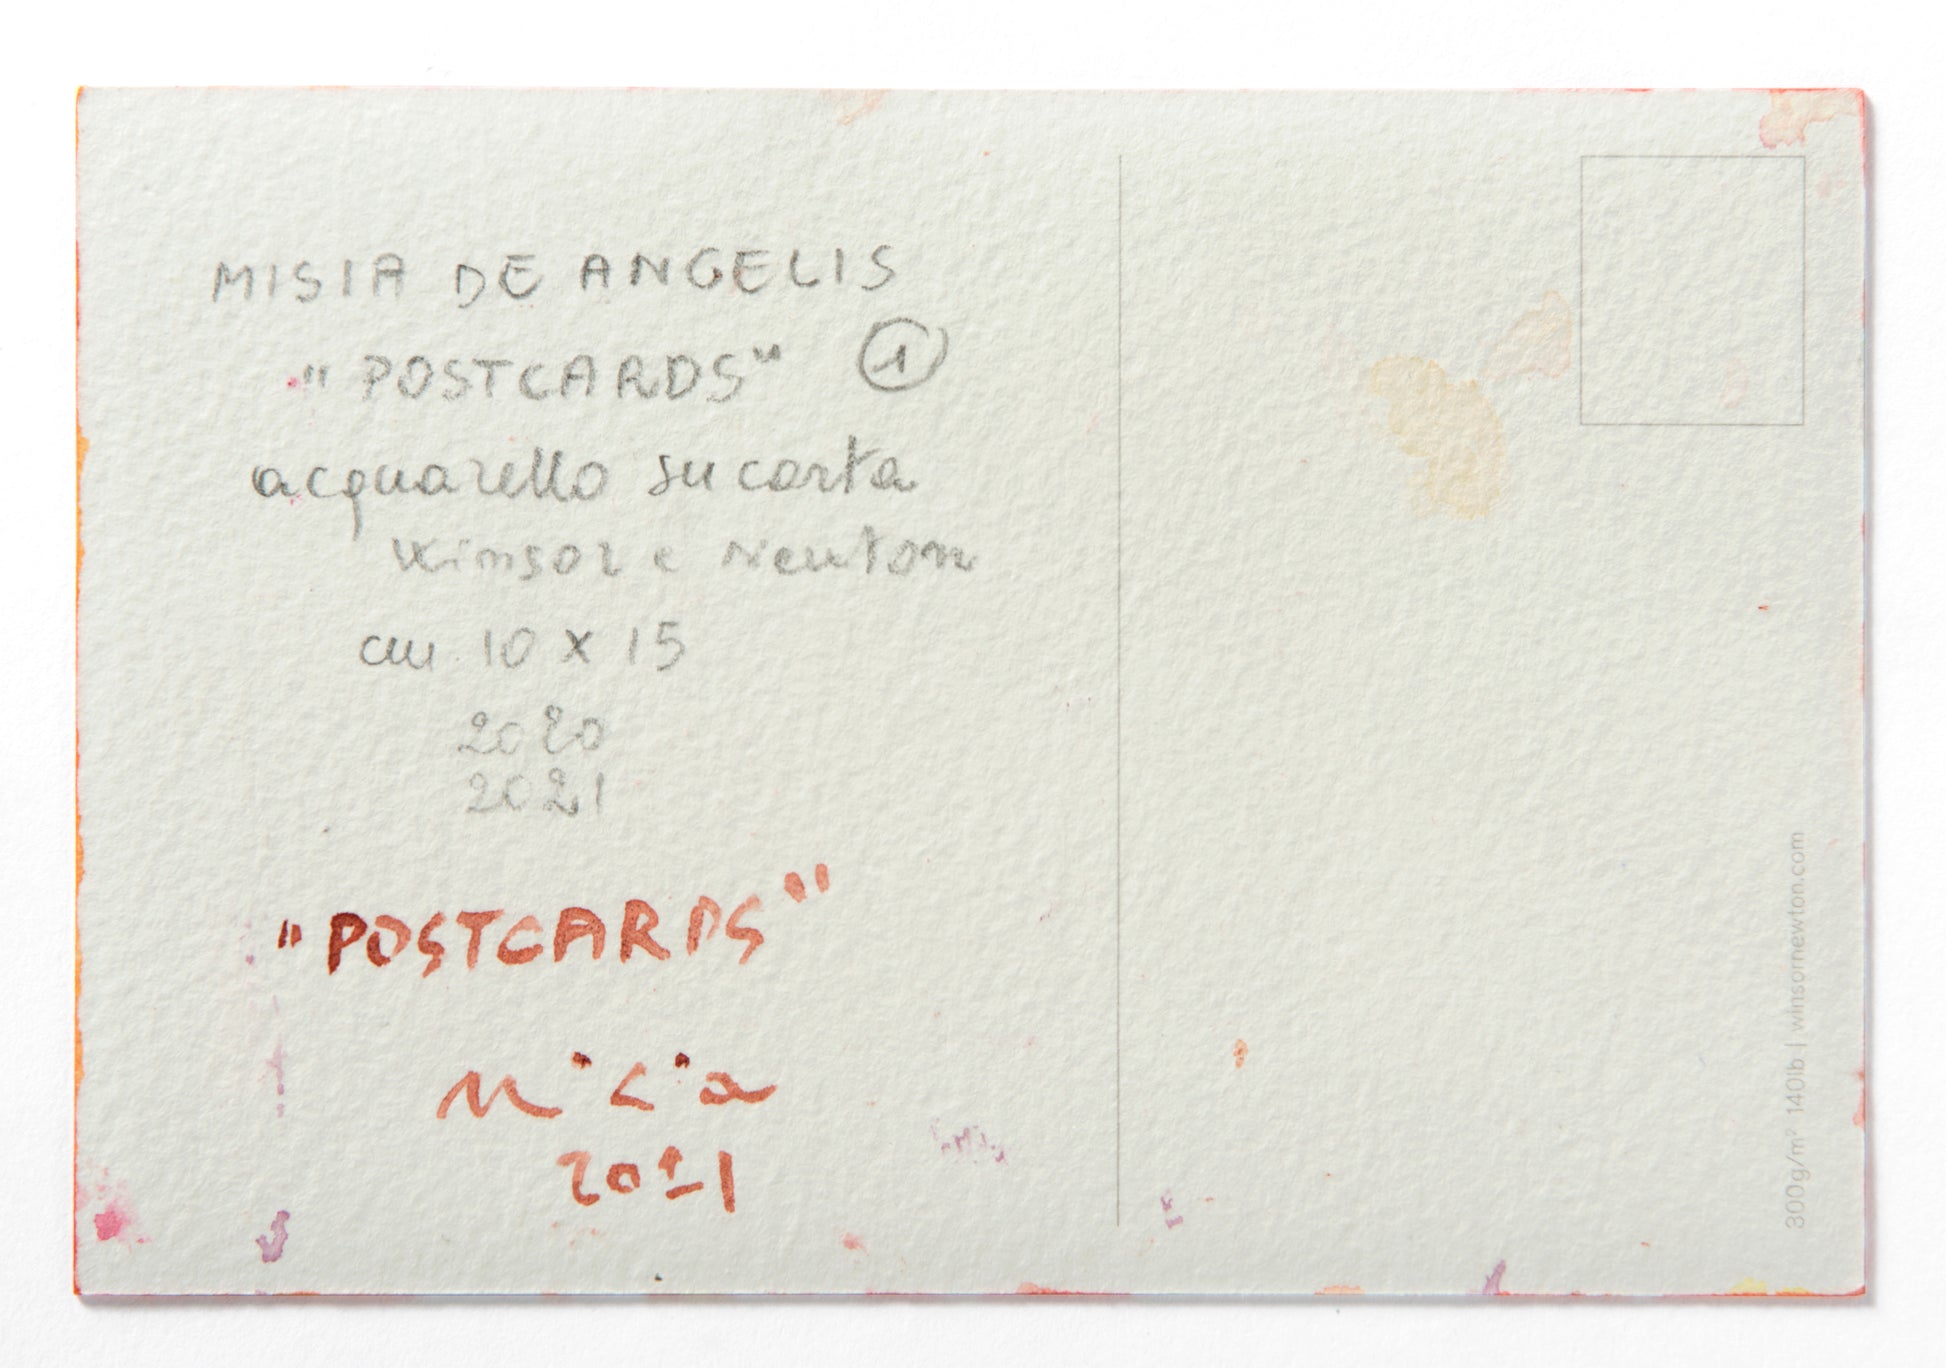 MISIA DE ANGELIS
"POSTCARDS" 1
acquarello su carta
Winsor e Newton
cm 10 x 15
2020
2021
"POSTCARDS"
Misia
2021
300g/m² 140lb | winsornewton.com